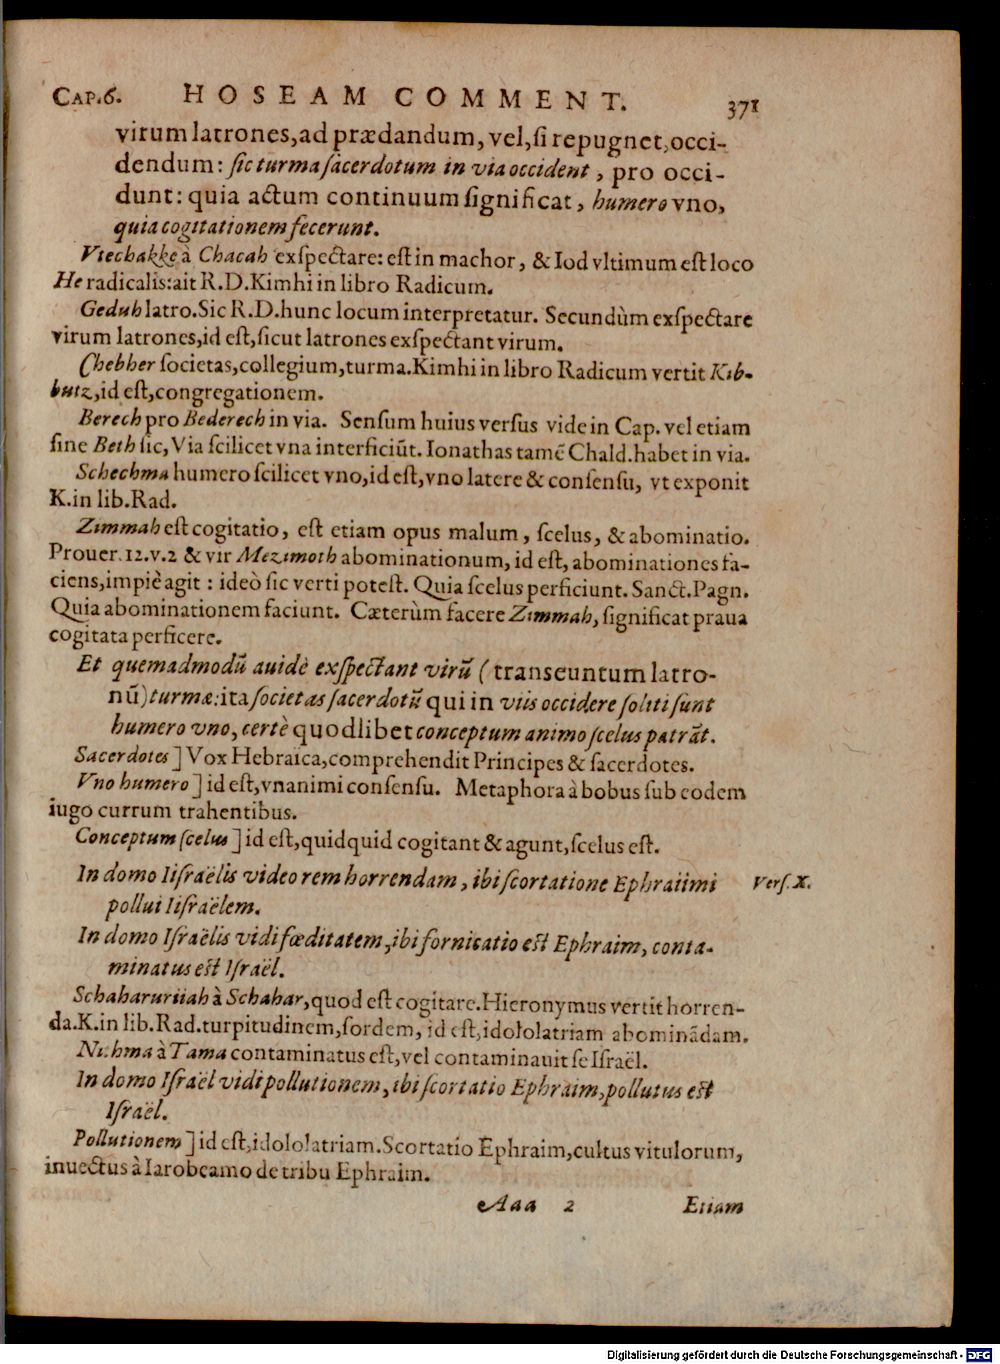 CAP.6. HOSEAM COMMENT. 371
virum latrones,ad prædandum, vel,ſi repugnet,occi-
dendum: ſic turma ſacerdotum in via occident, pro occi-
dunt: quia actum continuum ſignificat, humero vno,
quia cogitationem fecerunt.
Vtechakke à Chacah exſpectare: eſt in machor, & Iod vltimum eſt loco
He radicalis:ait R.D.Kimhi in libro Radicum.
Geduh latro.Sic R.D.hunc locum interpretatur. Secundùm exſpectare
virum latrones,id eſt,ſicut latrones exſpectant virum.
Chebher ſocietas,collegium,turma.Kimhi in libro Radicum vertit Kib-
butz,id eſt,congregationem.
Berech pro Bederech in via. Senſum huius verſus vide in Cap. vel etiam
ſine Beth ſic, Via ſcilicet vna interficiũt. Ionathas tamẽ Chald.habet in via.
Schechma humero ſcilicet vno,id eſt,vno latere & conſenſu, vt exponit
K.in lib.Rad.
Zimmah eſt cogitatio, eſt etiam opus malum, ſcelus, & abominatio.
Prouer.12.v.2 & vir Mezimoth abominationum, id eſt, abominationes fa-
ciens,impiè agit : ideò ſic verti poteſt. Quia ſcelus perficiunt. Sanct.Pagn.
Quia abominationem faciunt. Cæterùm facere Zimmah, ſignificat praua
cogitata perficere.
Et quemadmodũ auidè exſpectant virũ (transeuntum latro-
nũ)turmæ:ita ſocietas ſacerdotũ qui in viis occidere ſoliti ſunt
humero vno, certè quodlibet conceptum animo ſcelus patrãt.
Sacerdotes ] Vox Hebraica,comprehendit Principes & ſacerdotes.
Vno humero ] id eſt,vnanimi conſenſu. Metaphora à bobus ſub eodem
iugo currum trahentibus.
Conceptum ſcelus ] id eſt,quidquid cogitant & agunt,ſcelus eſt.
In domo Iiſraëlis video rem horrendam, ibi ſcortatione Ephraiimi Verſ.X.
pollui Iiſraëlem.
In domo Iſraëlis vidi fœditatem,ibi fornicatio eſt Ephraim, conta-
minatus eſt Iſraël.
Schaharuriiah à Schahar,quod eſt cogitare.Hieronymus vertit horren-
da.K.in lib.Rad.turpitudinem,ſordem, id eſt,idololatriam abominãdam.
Nithma à Tama contaminatus eſt,vel contaminauit ſe Iſraël.
In domo Iſraël vidi pollutionem, ibi ſcortatio Ephraim,pollutus eſt
Iſraël.
Pollutionem ] id eſt,idololatriam.Scortatio Ephraim,cultus vitulorum,
inuectus à Iarobeamo de tribu Ephraim.
Aaa 2 Etiam
Digitalisierung gefördert durch die Deutsche Forschungsgemeinschaft - DFG